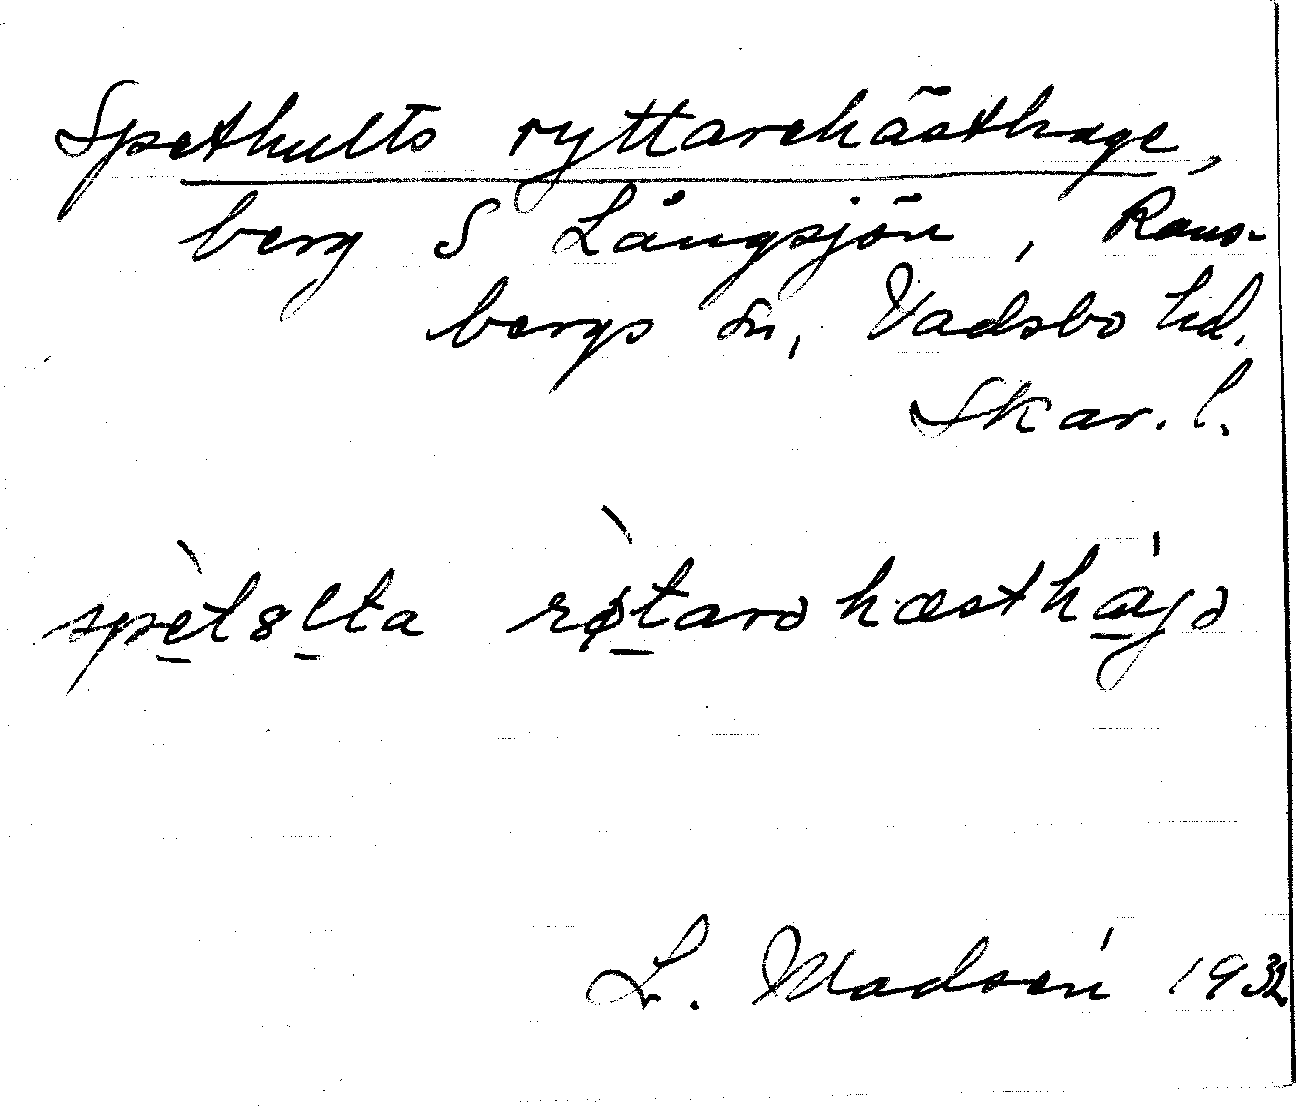 Spethults ryttarehästhage,
berg S Långsjön, Rans-
bergs sn, Vadsbo hd.
Skar. l.
spètₒlta røtarə hæsthàgə
L. Madsén 1932